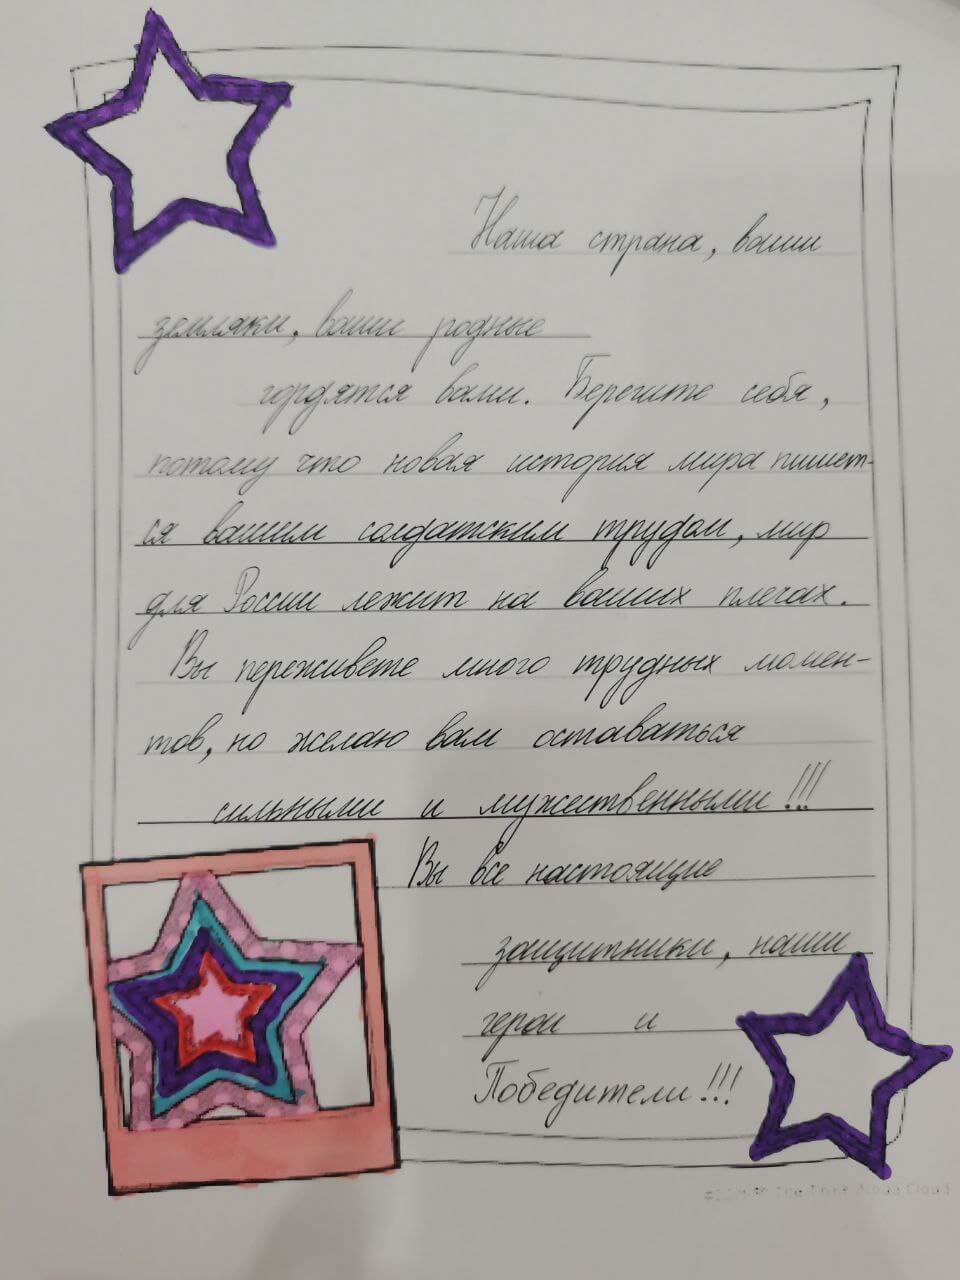 Наша страна, ваши
земляки, ваши родные
гордятся вами. Берегите себя,
потому что новая история мира пишет-
ся вашим солдатским трудом, мир
для России лежит на ваших плечах.
Вы переживете много трудных момен-
тов, но желаю вам оставаться
сильными и мужественными!!!
Вы все настоящие
защитники, наши
герои и
Победители!!!